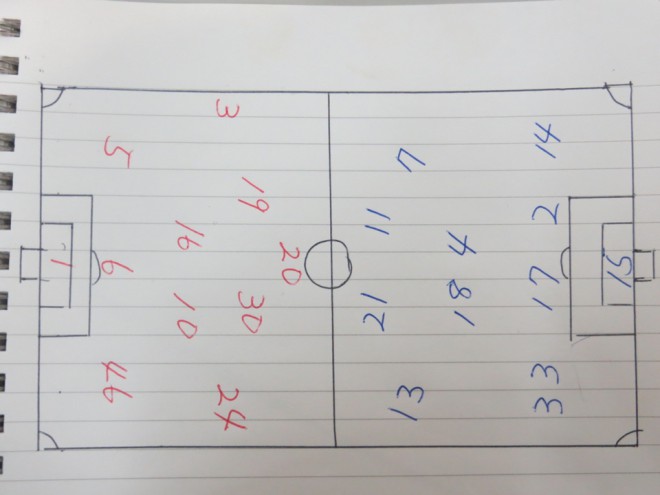 1
5 6 46
16 10
3 19 30 24
20
21 11
13 7
18 4
33 17 2 14
15